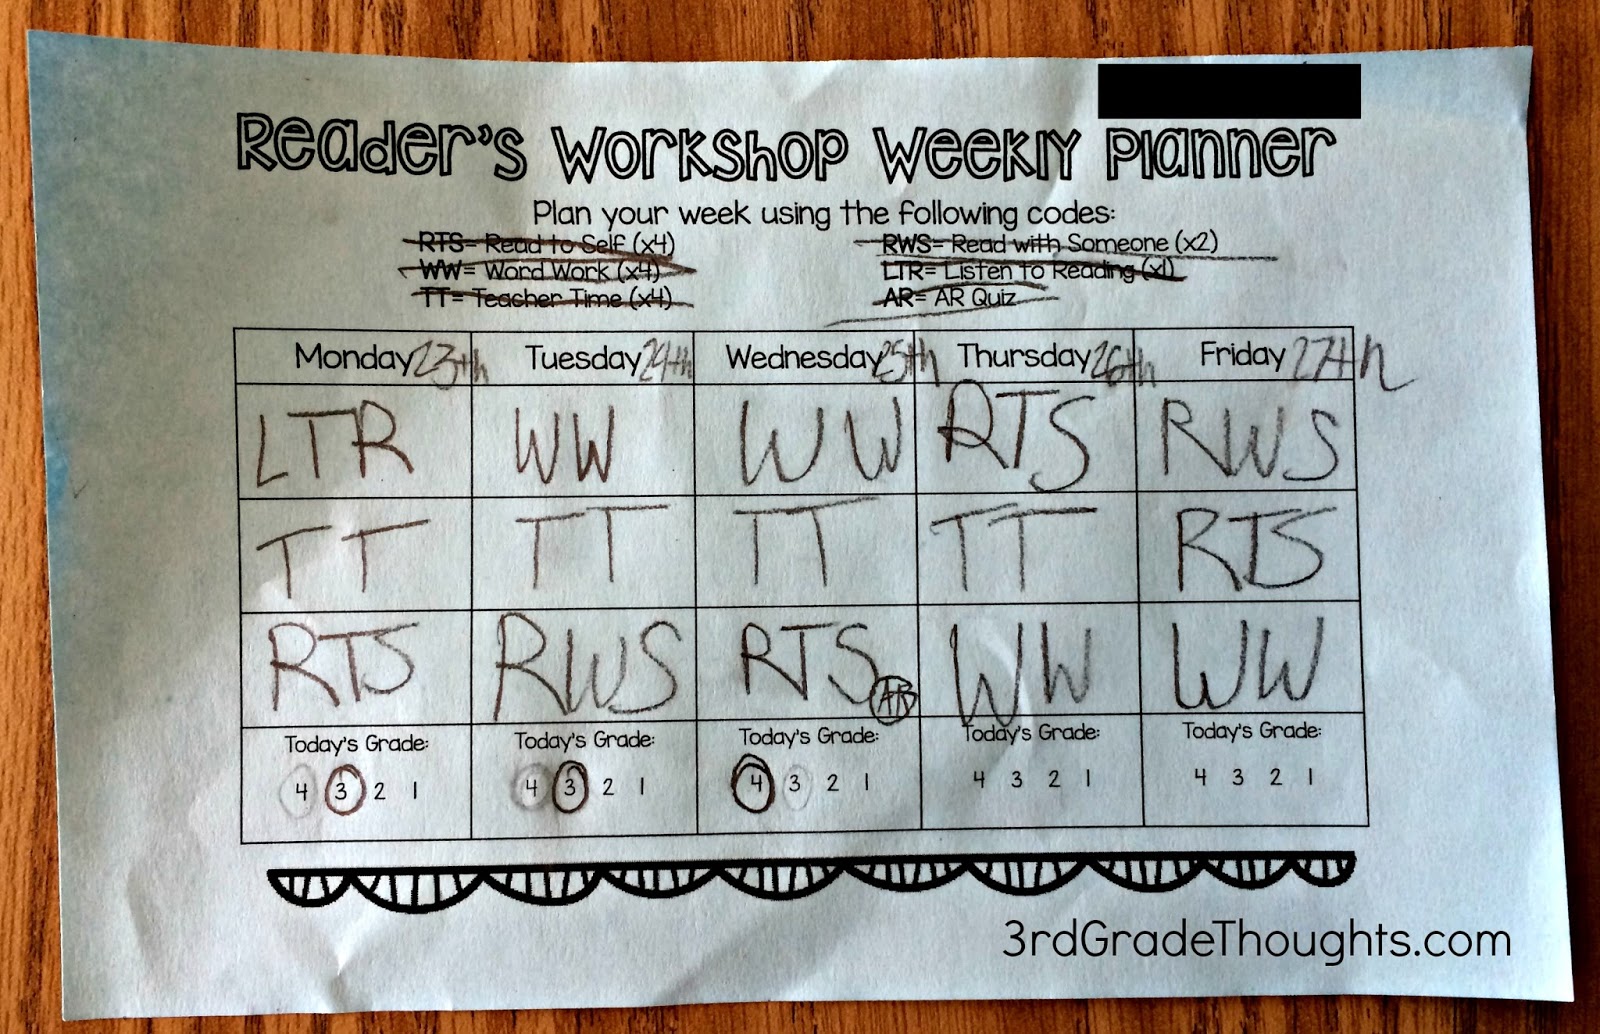 Reader's Workshop Weekly Planner
Plan your week using the following codes:
RTS= Read to Self (x4) RWS= Read with Someone (x2)
WW= Word Work (x4) LTR= Listen to Reading (x1)
TT= Teacher Time (x4) AR= AR Quiz
Monday 23th Tuesday 24th Wednesday 25th Thursday 26th Friday 27th
LTR WW WW RTS RWS
TT TT TT TT RTS
RTS RWS RTS AR WW WW
Today's Grade: Today's Grade: Today's Grade: Today's Grade: Today's Grade:
4 3 2 1 4 3 2 1 4 3 2 1 4 3 2 1 4 3 2 1
3rdGradeThoughts.com